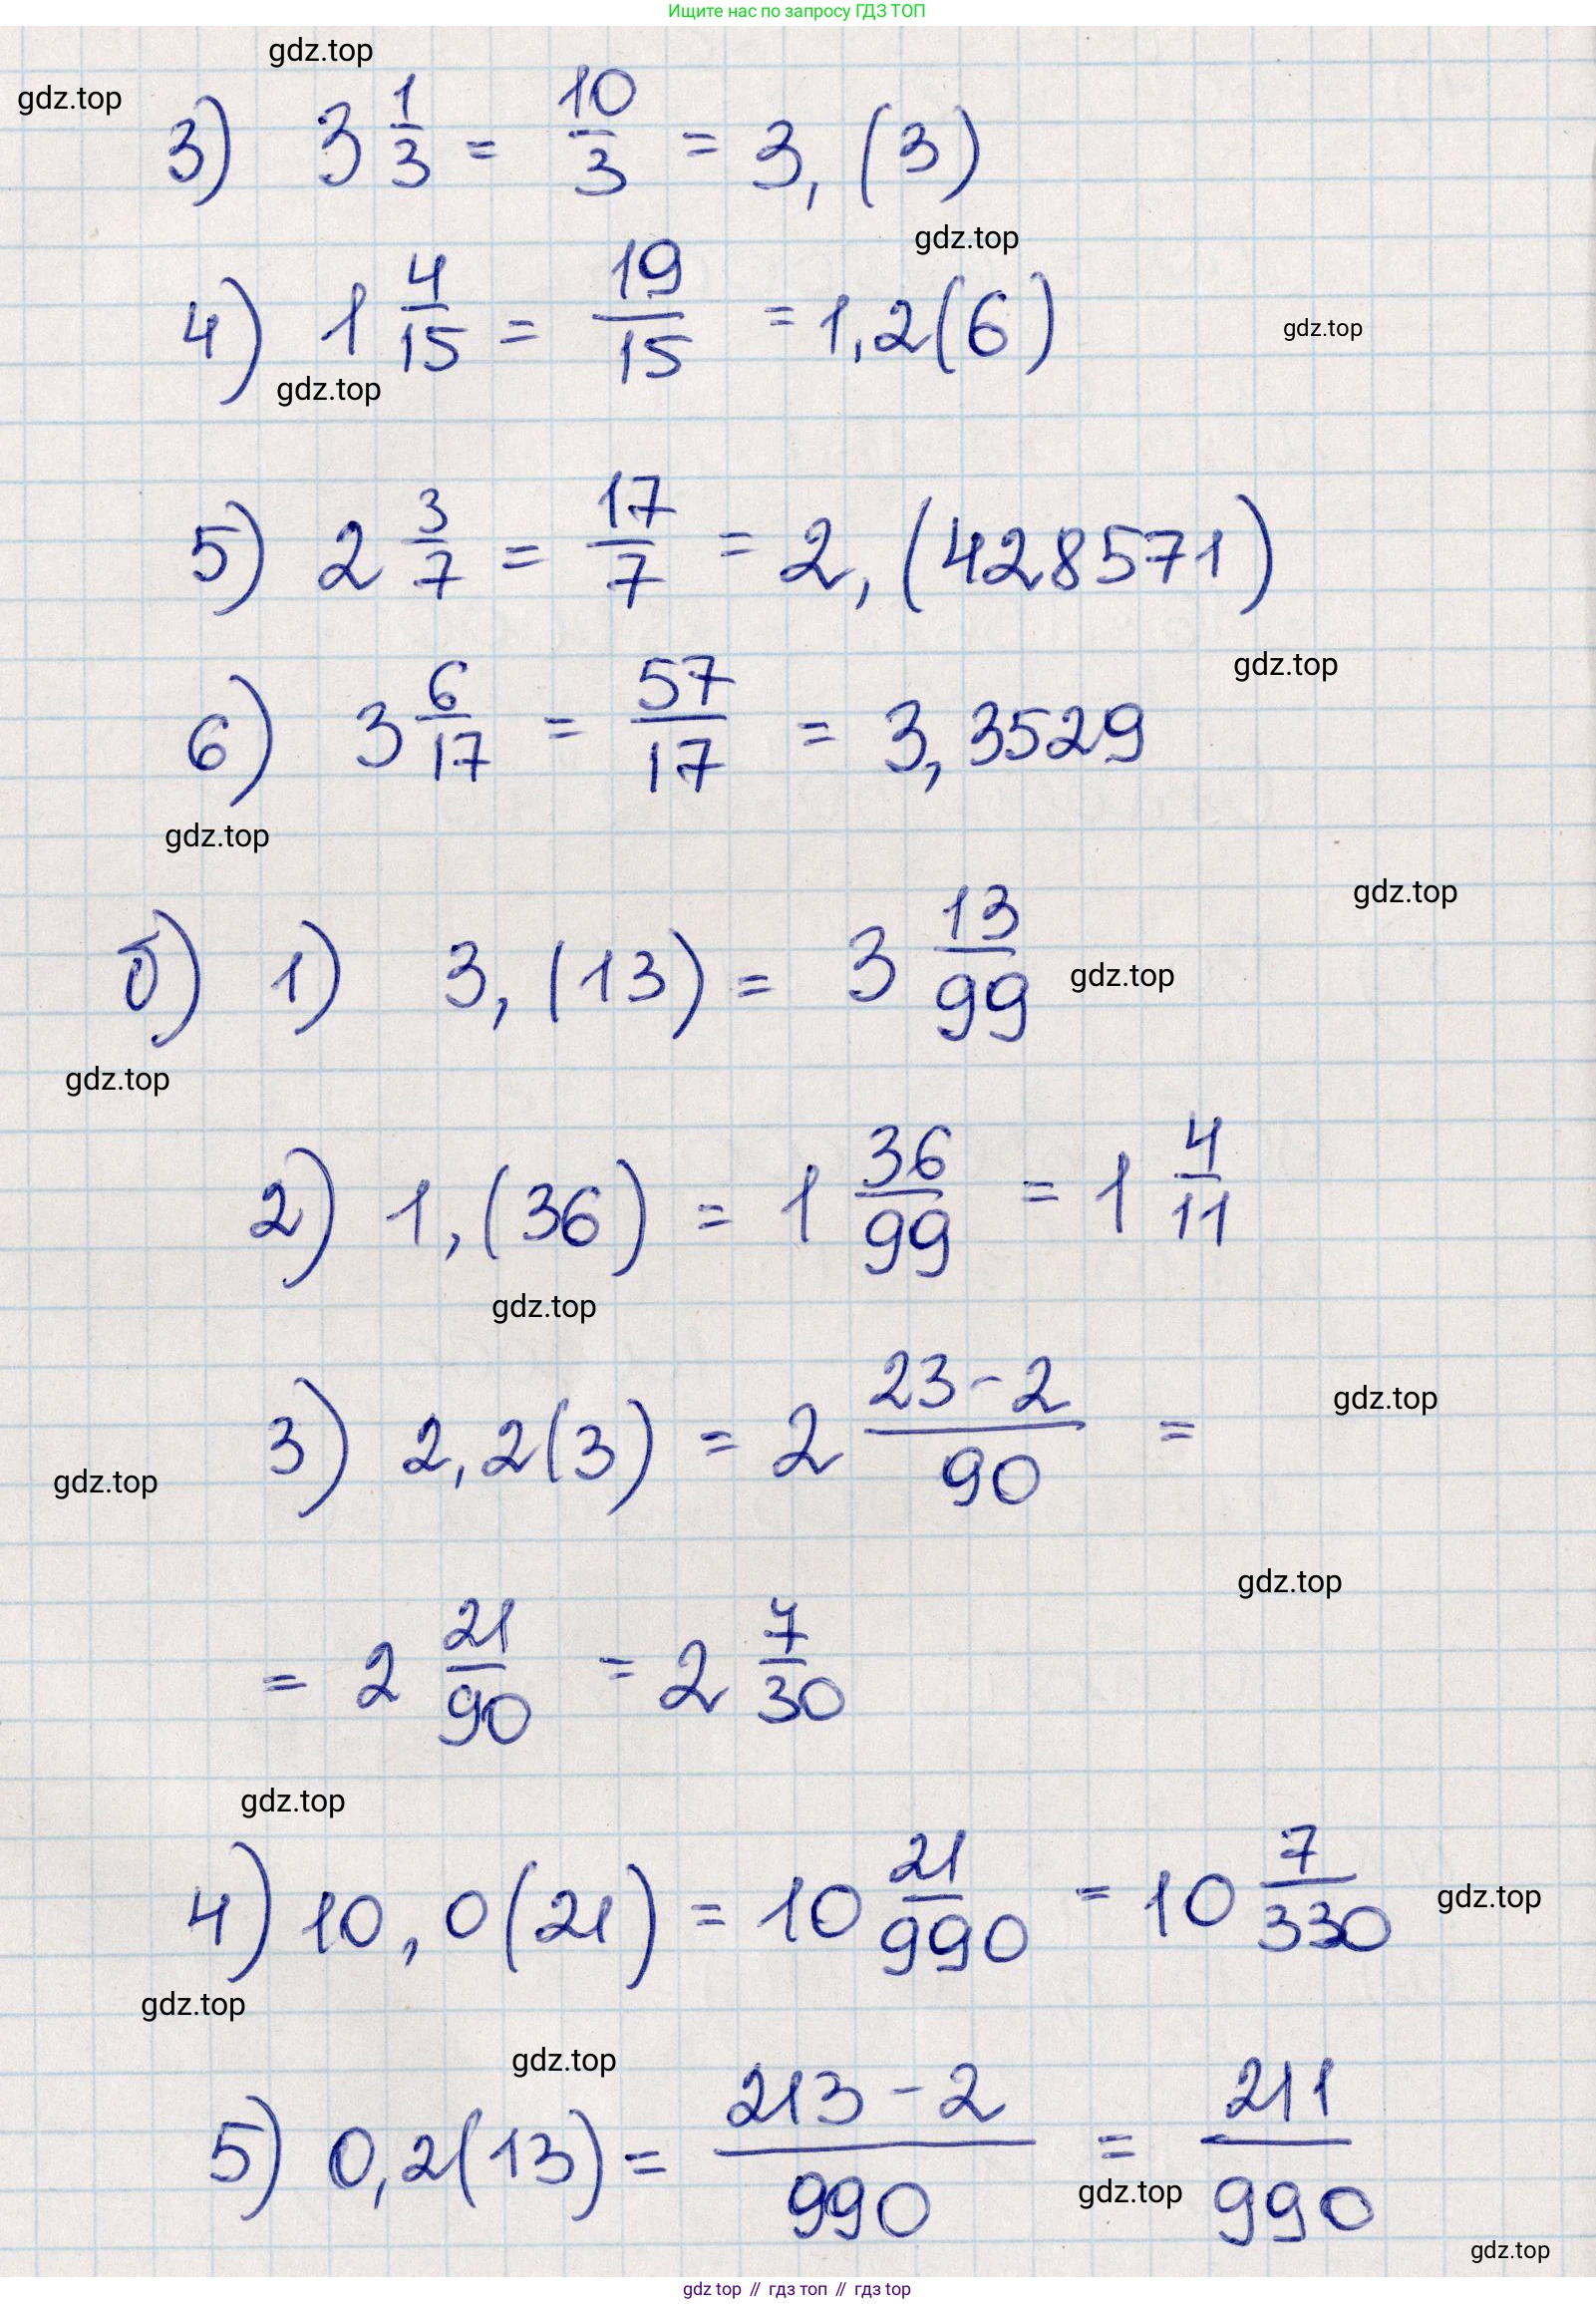 Ищите нас по запросу ГДЗ ТОП
gdz.top
gdz.top
3) 3 1/3 = 10/3 = 3,(3)
gdz.top
4) 1 4/15 = 19/15 = 1,2(6)
gdz.top
gdz.top
5) 2 3/7 = 17/7 = 2,(428571)
gdz.top
6) 3 6/17 = 57/17 = 3,3529
gdz.top
gdz.top
б) 1) 3,(13) = 3 13/99
gdz.top
gdz.top
2) 1,(36) = 1 36/99 = 1 4/11
gdz.top
gdz.top
3) 2,2(3) = 2 23-2/90 =
gdz.top
gdz.top
= 2 21/90 = 2 7/30
gdz.top
4) 10,0(21) = 10 21/990 = 10 7/330
gdz.top
gdz.top
gdz.top
5) 0,2(13) = 213-2/990 = 211/990
gdz.top
gdz.top
gdz top // гдз топ // gdz top